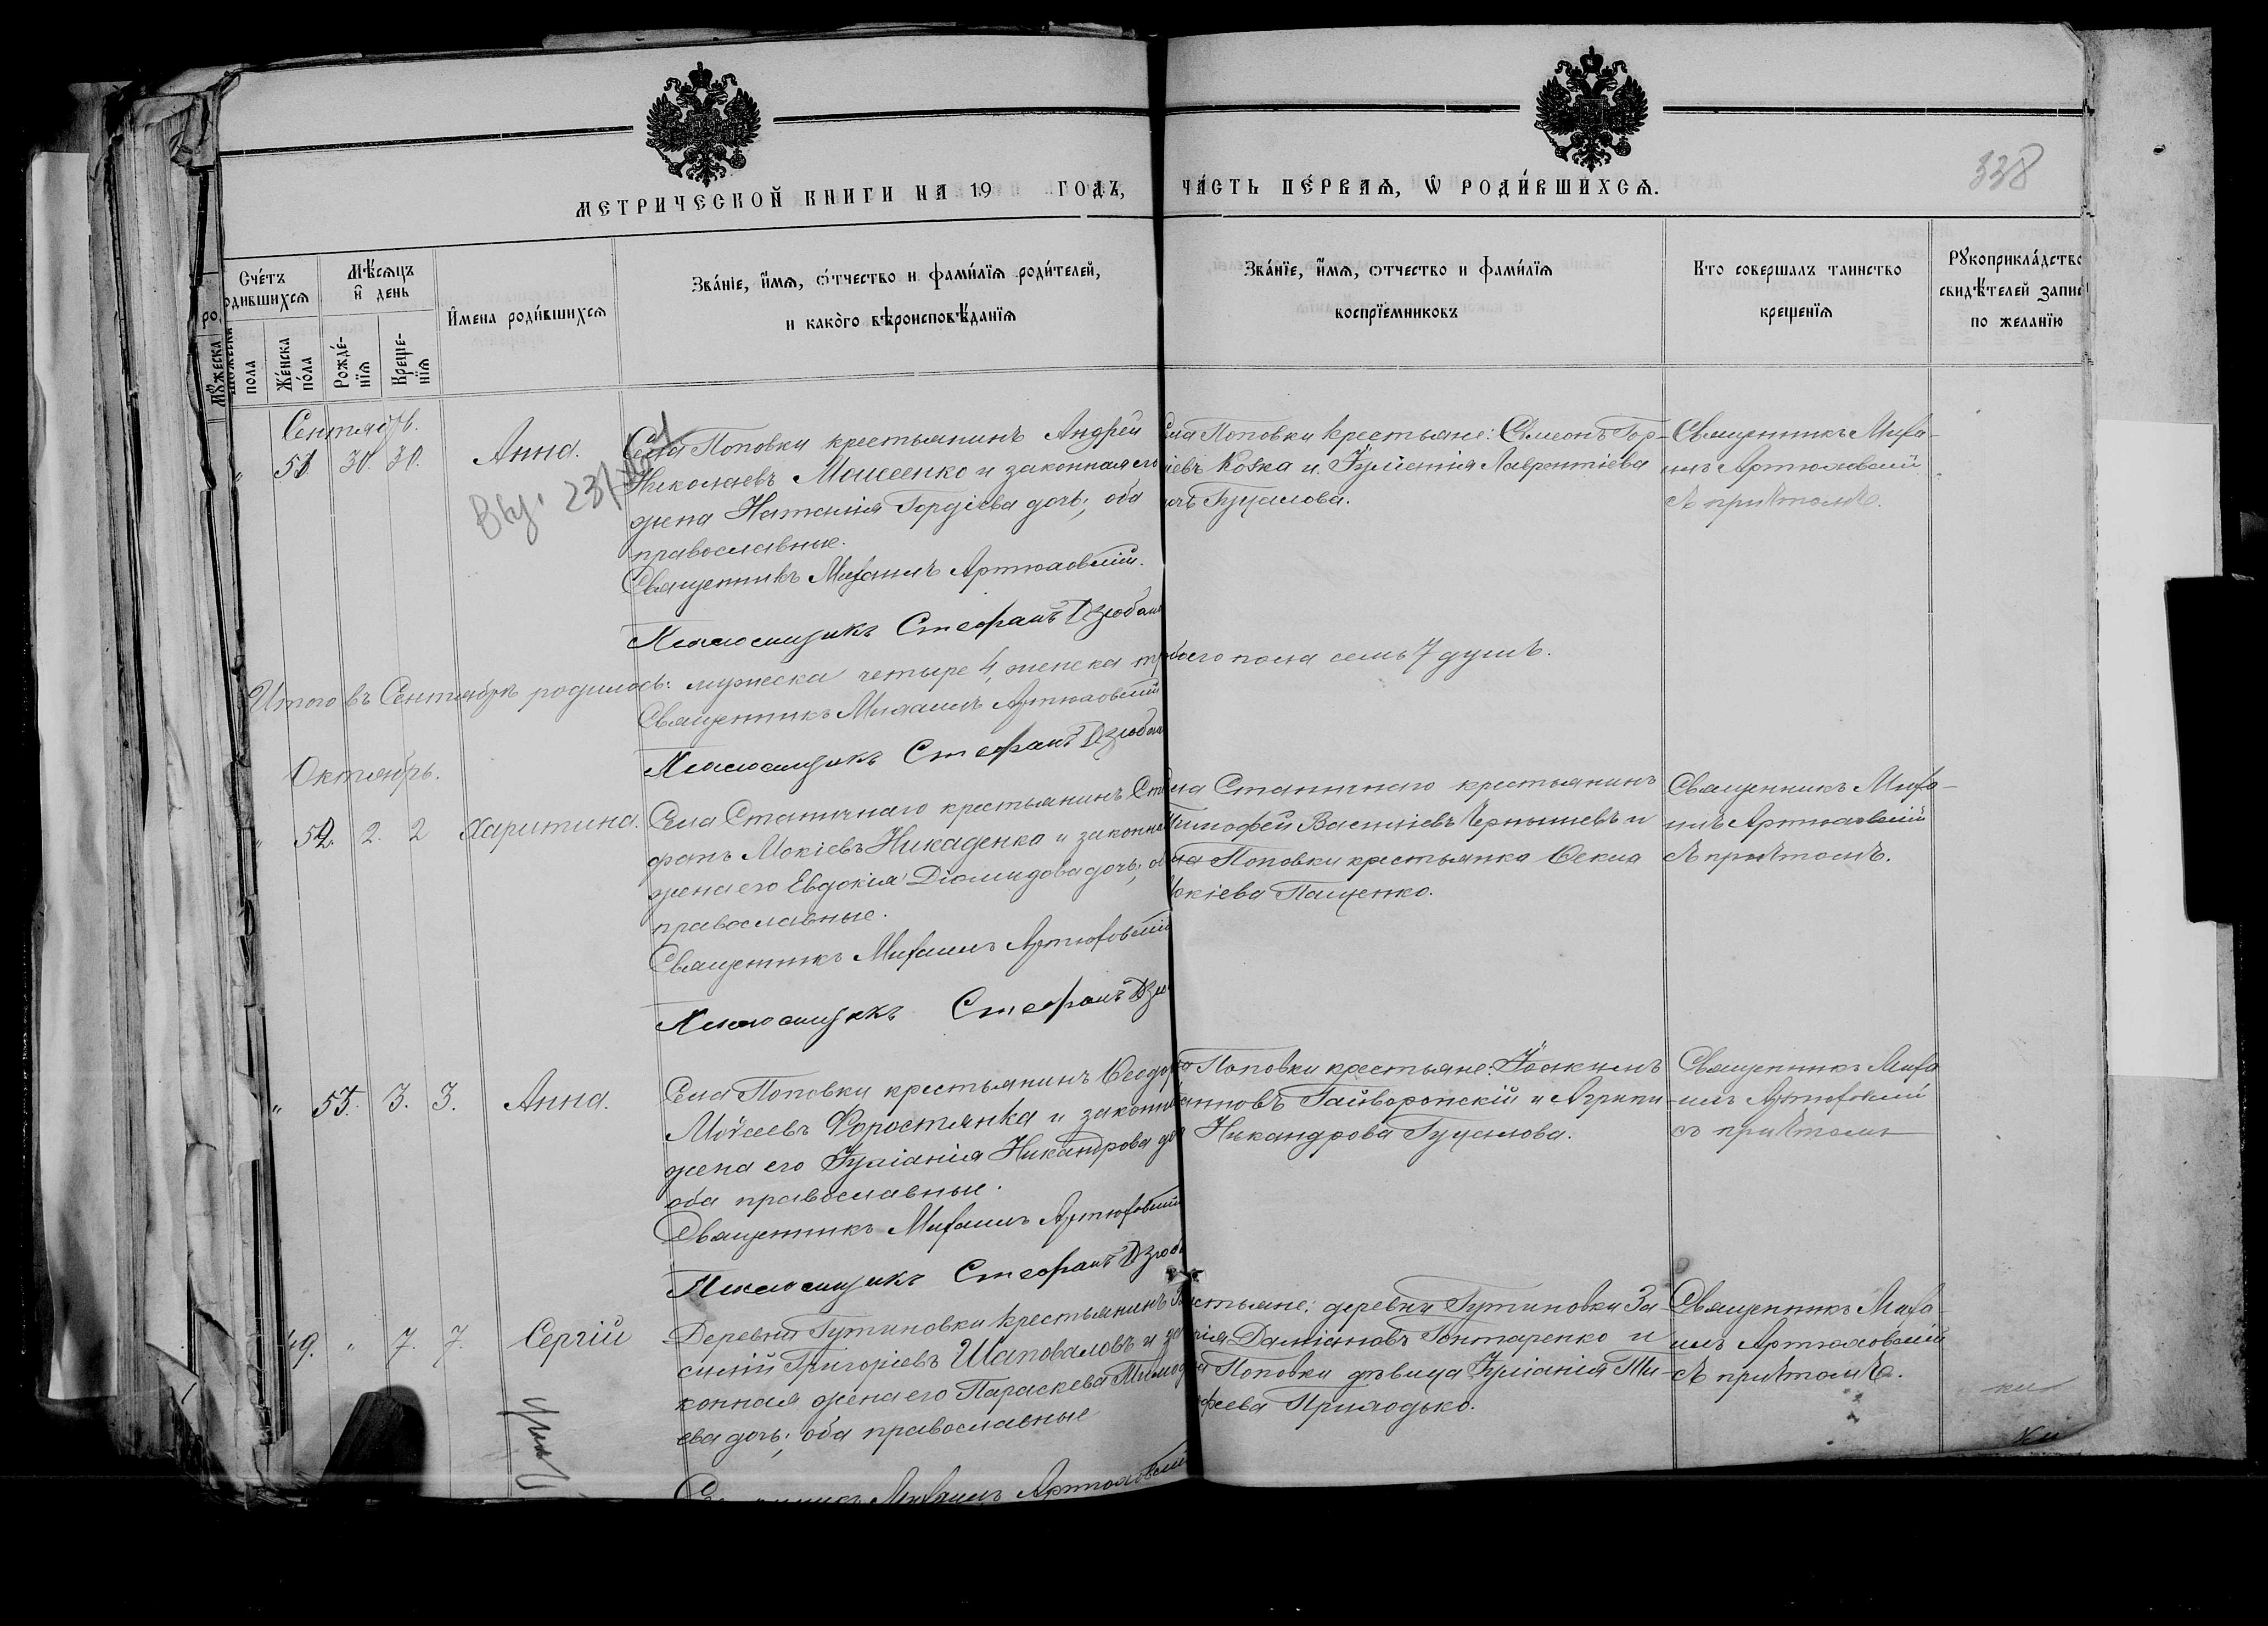 МЕТРИЧЕСКОЙ КНИГИ НА 19 ГОДЪ,
ЧА́СТЬ ПЕ́РВАѦ, Ѡ҆ РОДИ́ВШИХСѦ.
338
Сче́тъ
одившихсѧ
Мѣ́сѧцъ
и҆ день
И҆мена роди́вшихсѧ
Зва́нїе, и҆́мѧ, о́тчество и фами́лїѧ роди́телей,
и како̀го вѣроисповѣ́данїѧ
Зва́нїе, и҆́мѧ, отчество и фами́лїѧ
воспрїе́мниковъ
Кто совершалъ таинство
крещенїѧ
Рꙋкоприкла́дство
свидѣ́телей запис
по жела́нїю
Мꙋжеска
пола
Же́нска
по́ла
Рожде́-
нїѧ
Креще-
нїѧ
Сентябрь.
" 51 30. 30. Анна.
Села Поповки крестьянинъ Андрей
Николаевъ Моисеенко и законная его
жена Наталия Гордіева дочь; оба
православные.
Священникъ Михаилъ Артюховскій.
Псаломщикъ Стефанъ Дзюбан
ела Поповки крестьяне: Симеонъ Гор-
іевъ Козка и Іуліанія Лаврентіева
очь Гуцалова.
Священникъ Миха-
илъ Артюховскій
съ причтомъ.
Итого въ Сентябрѣ родилось: мужеска четыре 4, женска тр
обоего пола семь 7 душъ.
Священникъ Михаилъ Артюховскій
Псаломщикъ Стефанъ Дзюбан
Октябрь.
" 52. 2. 2 Харитина.
Села Станичнаго крестьянинъ Сте
фанъ Мокіевъ Никаденко и законна
жена его Евдокія Діомидова дочь; об
православные.
Священникъ Михаилъ Артюховскій
Псаломщикъ Стефанъ Дзю
ела Станичнаго крестьянинъ
Тимофей Василіевъ Чернышевъ и
ела Поповки крестьянка Ѳекла
Мокіева Пащенко.
Священникъ Миха-
илъ Артюховскій
съ причтомъ.
" 53. 3. 3. Анна.
Села Поповки крестьянинъ Ѳеодор
Моѵсеевъ Форостянка и законна
жена его Іуліанія Никандрова до
оба православные.
Священникъ Михаилъ Артюховскій
Псаломщикъ Стефанъ Дзюб
Поповки крестьяне: Іоакимъ
анновъ Гайворонскій и Агрипи
Никандрова Гуцалова.
Священникъ Миха
илъ Артюховскій
съ причтомъ
49. " 7. 7. Сергій
Деревни Гутниковки крестьянинъ Ва
силій Григоріевъ Шаповаловъ и за
конная жена его Параскева Тимоф
ева дочь; оба православные
Михаилъ Артюховскій
естьяне: деревни Гутниковки За-
харія Даміановъ Гонтаренко и
ела Поповки дѣвица Іуліанія Ти-
мофеева Приходько.
Священникъ Миха-
илъ Артюховскій
съ причтомъ.